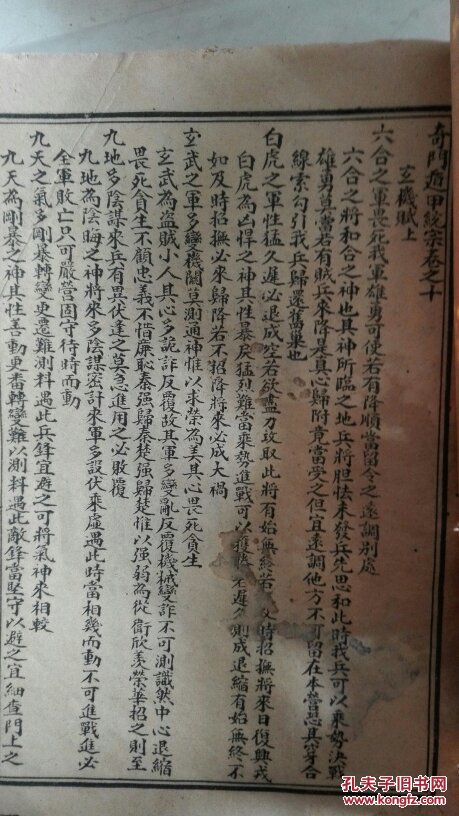 奇門遁甲統宗卷之十
玄機賦上
六合之軍畏死我軍雄勇可使若有降順當留令之遠調別處
六合之將和合之神也其神所臨之地兵將胆怯未發兵先思和此時我兵可以乘勢決戰
雄勇莫當若有賊兵來降是真心歸附竟當受之但宜遠調他方不可留在本營恐其穿合
線索勾引我兵歸還舊巢也
白虎之軍性猛久遲必退成空若欲盡力攻取此將有始無終若 時招撫將來日復興戎
白虎為凶悍之神其性暴戾猛烈難當乘勢進戰可以獲勝 遲 則成退縮有始無終不
如及時招撫必來歸降若不招降將來必成大禍
玄武之軍多變機關莫測通神惟以求榮為美其心畏死貪生
玄武為盜賊小人其心多詭詐反覆故其軍多變亂反覆機械變詐不可測識然中心退縮
畏死貪生不顧忠義不惜廉恥秦强歸秦楚强歸楚惟以强弱為從衛欣羨榮華招之則至
九地多陰謀來兵有異伏逢之莫急進用之必敗覆
九地為陰晦之神將來多陰謀密計來軍多設伏乘虛遇此時當相幾而動不可進戰進必
全軍敗亡只可嚴營固守待時而動
九天之氣多剛暴轉變更遷難測料遇此兵鋒宜避之可將氣神來相較
九天為剛暴之神其性善動更番轉變難以測料遇此敵鋒當堅守以避之宜細查門上之
孔夫子旧书网
www.kongfz.com